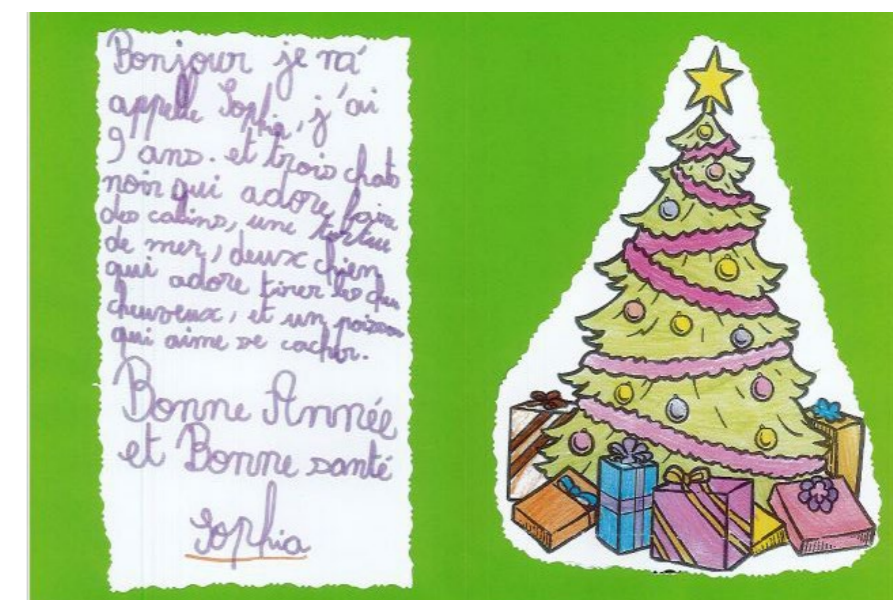 Bonjour je m'
appelle Sophia, j'ai
9 ans. et trois chats
noir qui adore faire
des calins, une tortue
de mer, deux chien
qui adore tirer les
cheuveux, et un poisson
qui aime se cacher.
Bonne Année
et Bonne santé
Sophia